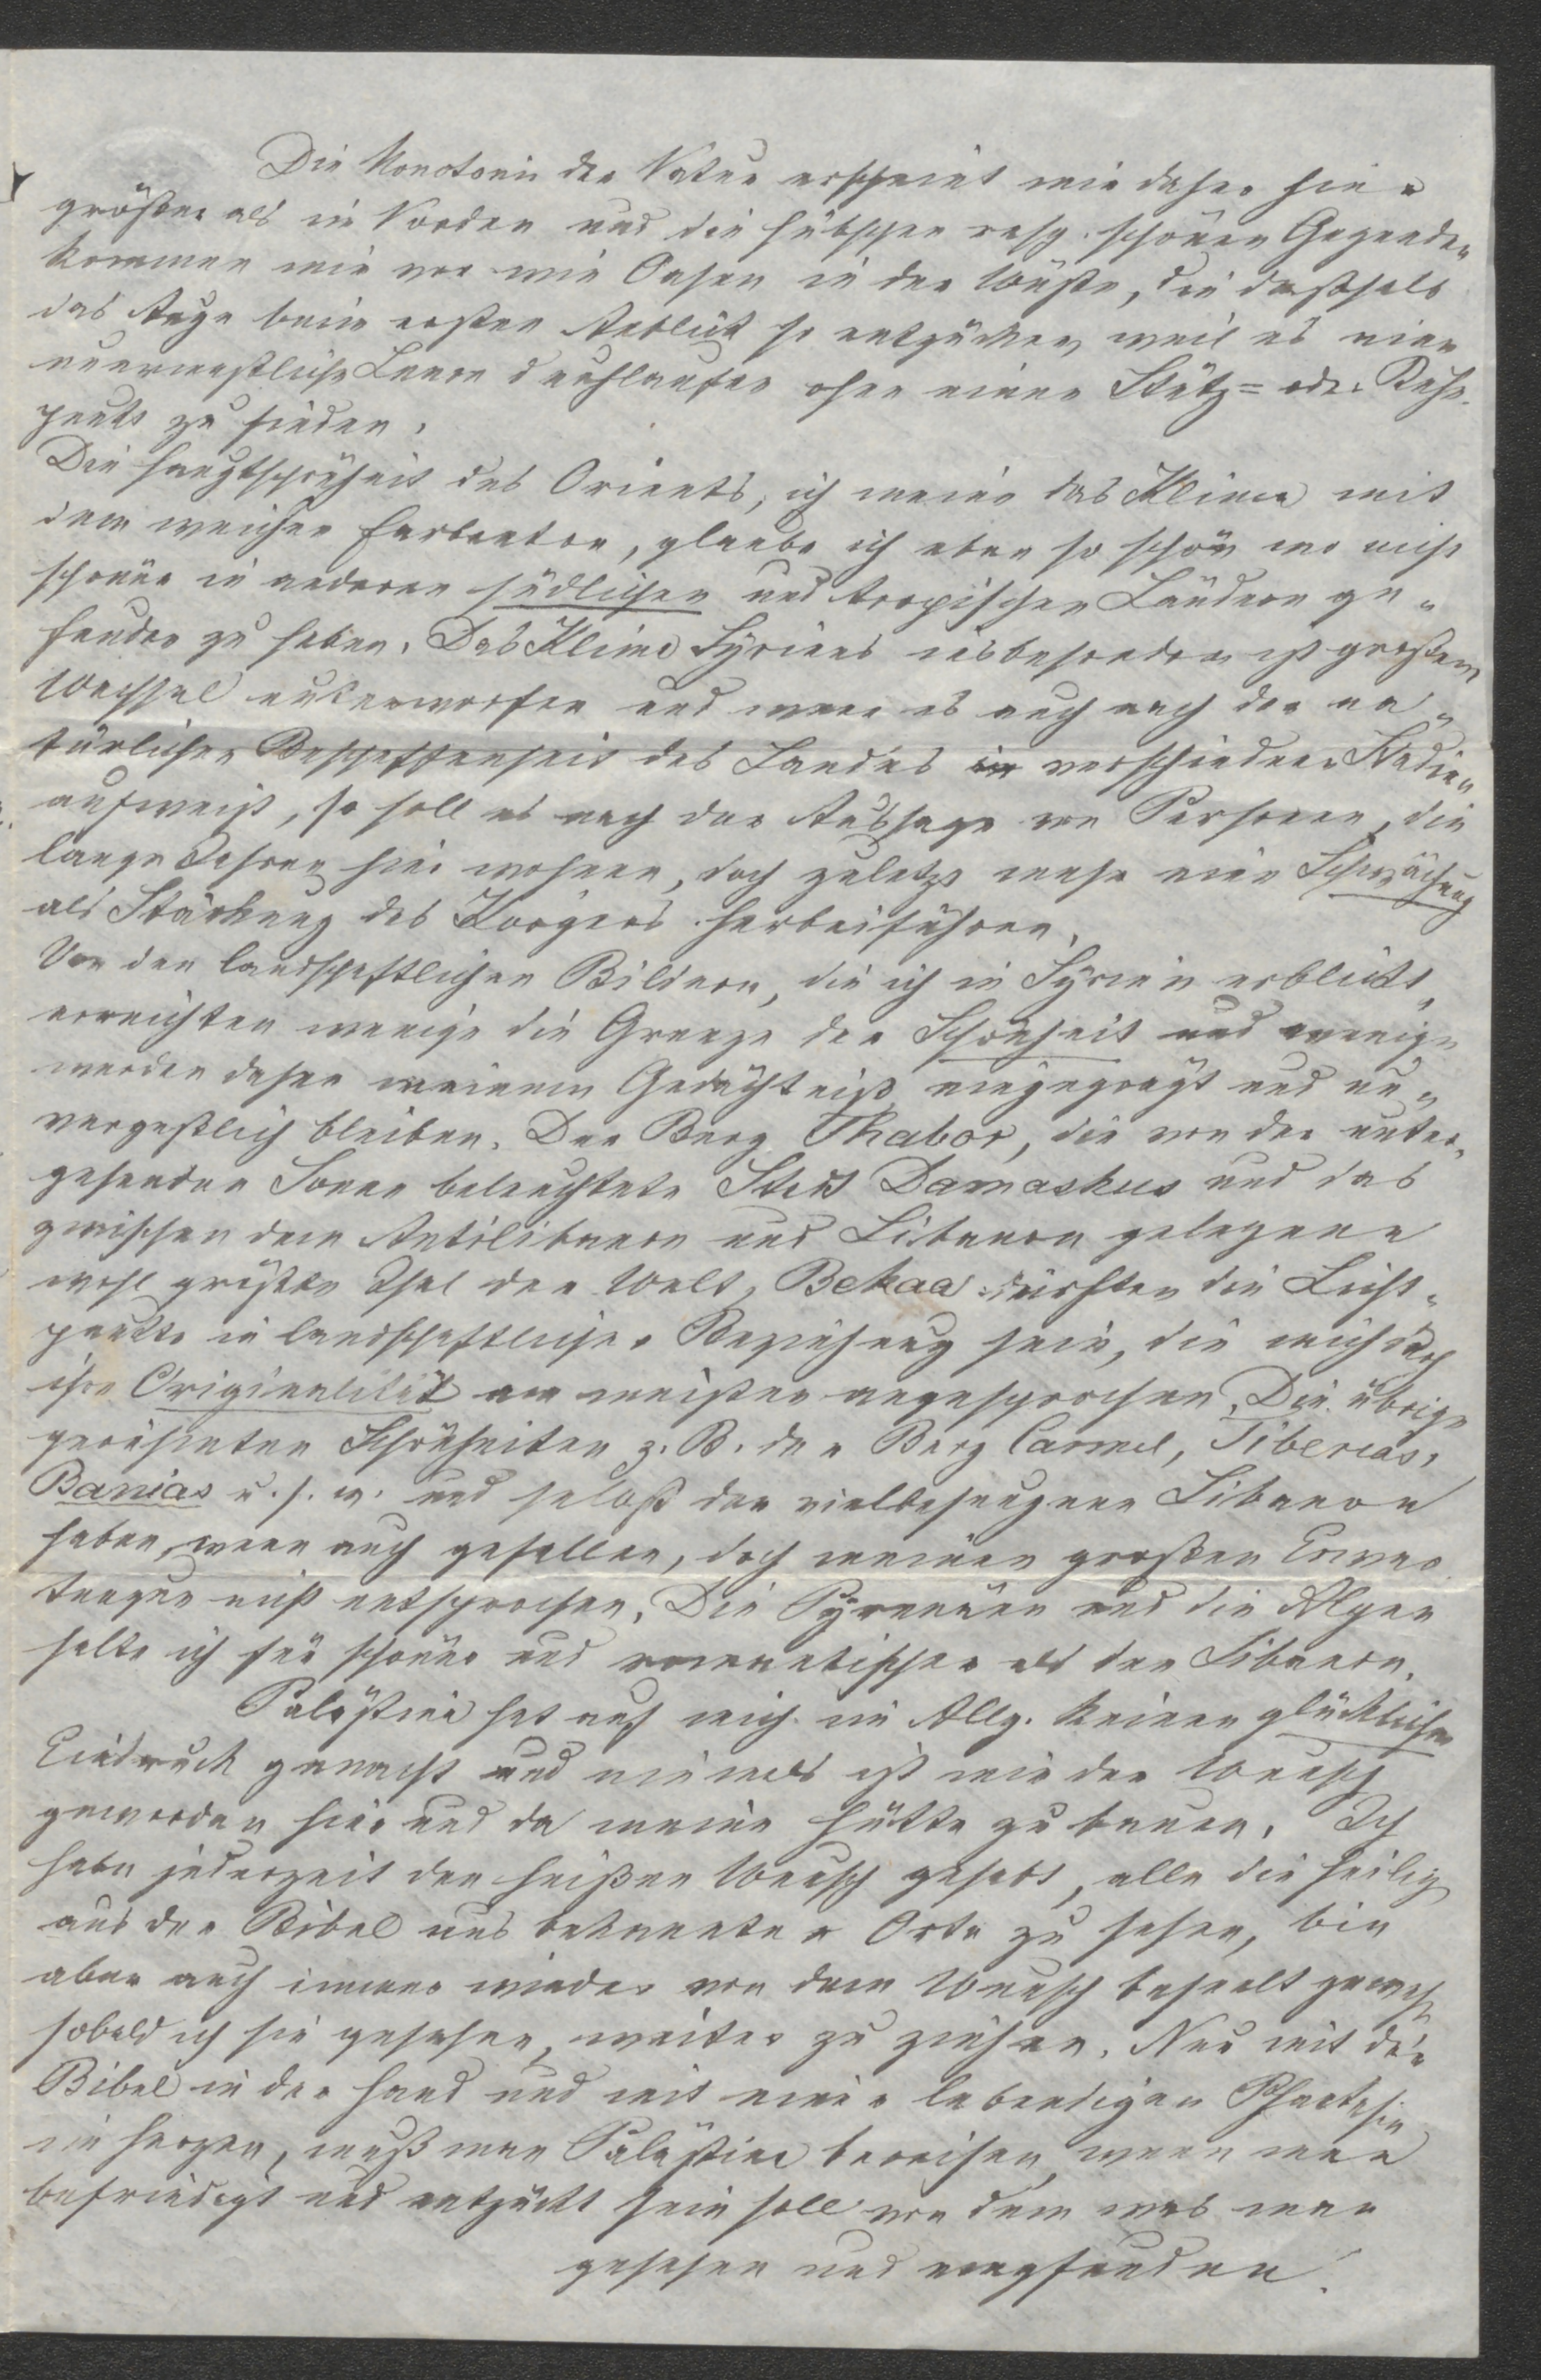 Die Monotonie der Natur erscheint mir daher hier
größer als im Norden und die hübschen resp. schönen Gegenden
kommen mir vor wie Oasen in der Wüste, die deßhalb
das Auge beim ersten Anblick so entzücken weil es eine
unermeßliche Leere durchlaufen ohne einen Stütz= oder Ruhe-
punkt zu finden.
Die Hauptschönheit des Orients, ich meine das Klima mit
dem weichen Farbenton, glaube ich eben so schön wo nicht
schöner in anderen südlichen und tropischen Ländern ge-
funden zu haben. Das Klima Syriens insbesondere ist großem
Wechsel unterworfen und wenn es auch nach der na-
türlichen Beschaffenheit des Landes verschiedene Stadien
aufweist, so soll es nach der Aussage von Personen, die
lange Jahre hier wohnen, doch zuletzt mehr eine Schwächung
als Stärkung des Körpers herbeiführen.
Von den landschaftlichen Bildern, die ich in Syrien erblickt,
erreichten wenige die Grenze der Schönheit und wenige
werden daher meinem Gedächtniß eingeprägt und un-
vergeßlich bleiben. Der Berg Thabor, die von der unter-
gehenden Sonne beleuchtete Stadt Damaskus und das
zwischen dem Antilibanon und Libanon gelegene
wohl größte Thal der Welt, Bekaa dürften die Licht-
punkte in landschaftlicher Beziehung sein, die mich durch
ihre Originalität am meisten angesprochen. Die übrigen
gerühmten Schönheiten z. B. der Berg Carmel, Tiberias,
Banias u. s. w. und selbst der vielbesungene Libanon
haben, wenn auch gefallen, doch meinen großen Erwar-
tungen nicht entsprochen. Die Pyrenäen und die Alpen
halte ich für schöner und romantischer als den Libanon.
Palästina hat auf mich im Allg. keinen glücklichen
Eindruck gemacht und niemals ist mir der Wunsch
geworden hier und da meine Hütte zu bauen. Ich
habe jederzeit den heißen Wunsch gehabt, alle die heilig
aus der Bibel uns bekannten Orte zu sehen, bin
aber auch immer wieder von dem Wunsch beseelt gewest
sobald ich sie gesehen, weiter zu ziehen. Nur mit der
Bibel in der Hand und mit einer lebendigen Phantasie
im Herzen, muß man Palästina bereisen, wenn man
befriedigt und entzückt sein soll von dem was man
gesehen und empfunden.